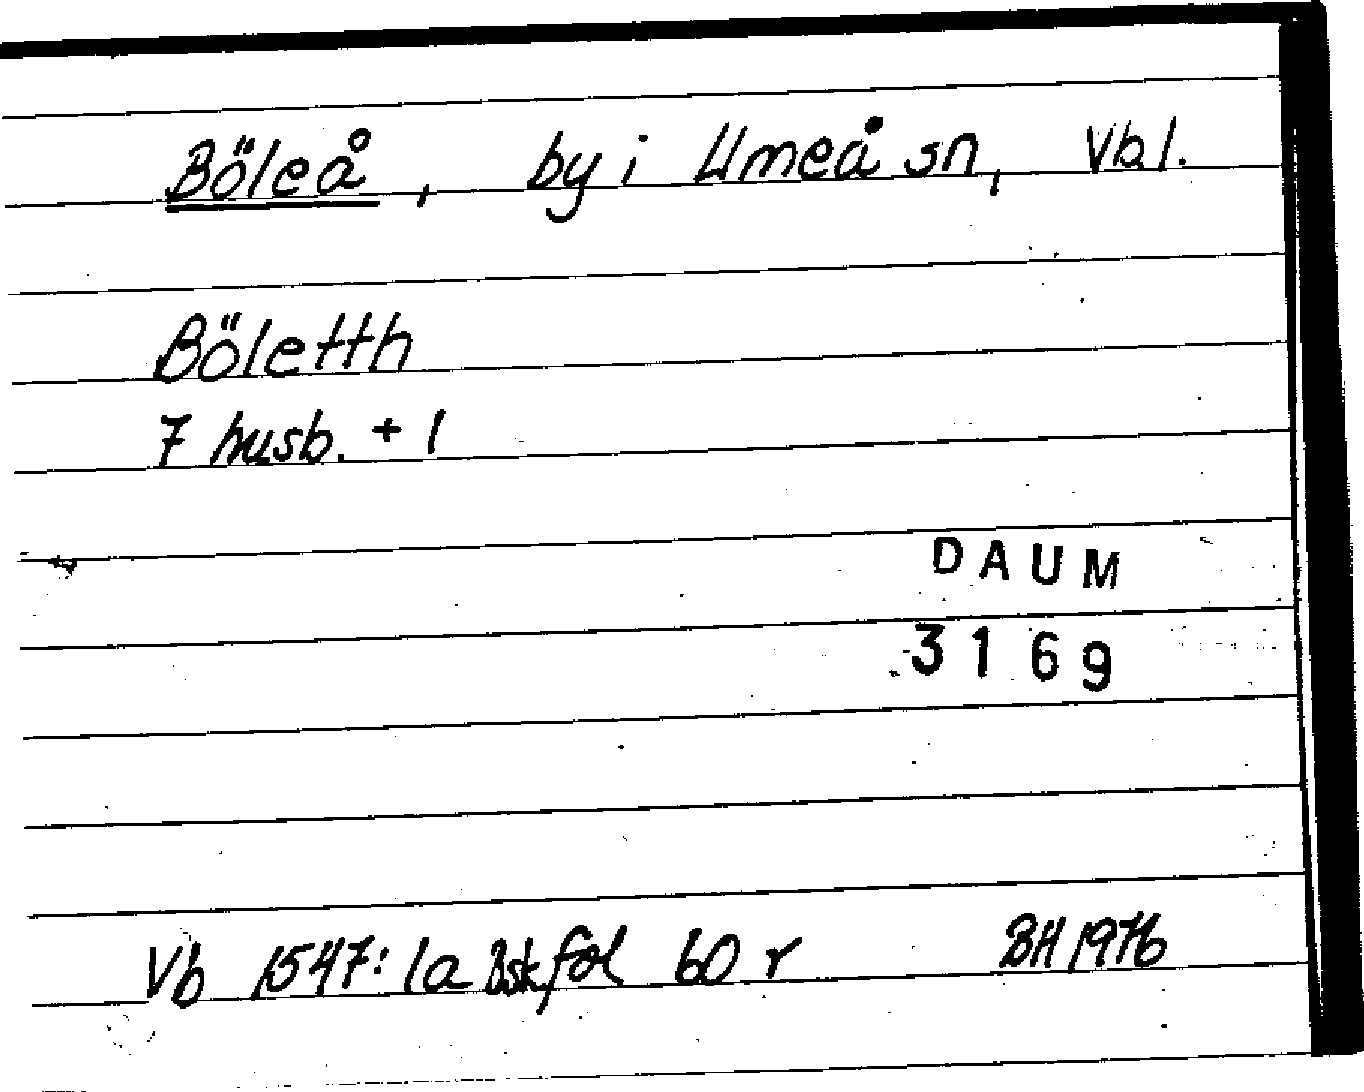 Böleå, by i Umeå sn, Vbl.
Böletth
7 husb. + 1
DAUM
3169
Vb 1547: 1a Bsk fol 60 r BH 1976